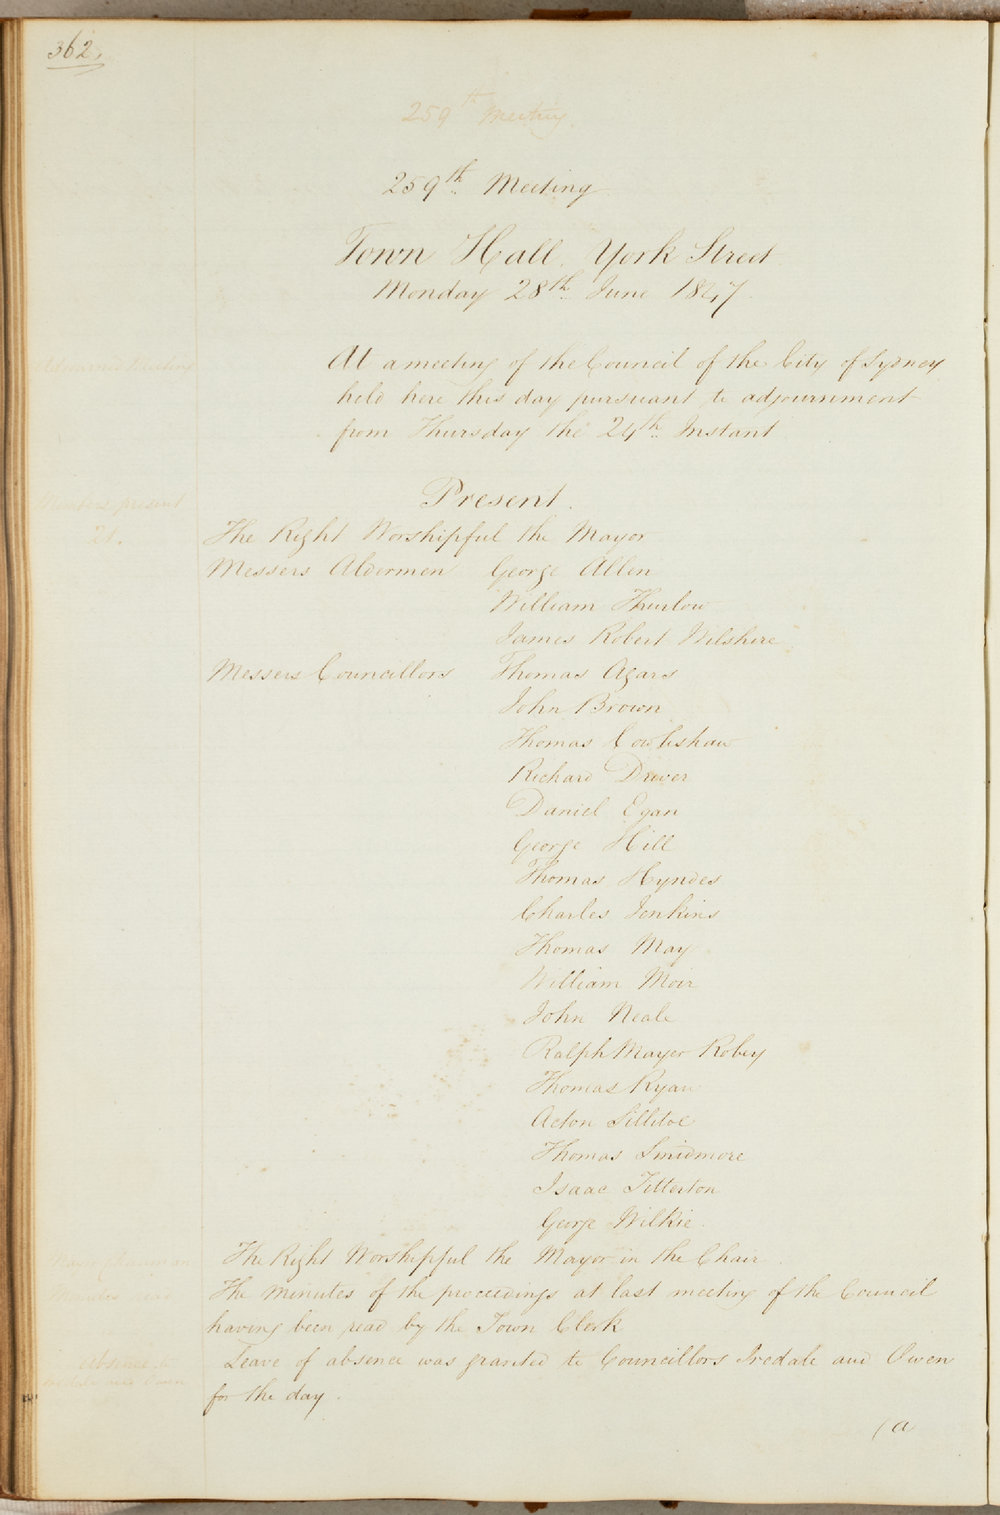 362.
259th Meeting.
259th Meeting
Town Hall, York Street
Monday 28th June 1847.
Adjourned Meeting
At a meeting of the Council of the City of Sydney
held here this day pursuant to adjournment
from Thursday the 24th Instant
Members present
21.
Present.
The Right Worshipful the Mayor
Messers Aldermen George Allen
William Thurlow
James Robert Wilshire
Messers Councillors Thomas Agars
John Brown
Thomas Cowlishaw
Richard Driver
Daniel Egan
George Hill
Thomas Hyndes
Charles Jenkins
Thomas May
William Moir
John Neale
Ralph Mayer Robey
Thomas Ryan
Acton Sillitoe
Thomas Smidmore
Isaac Titterton
George Wilkie.
Mayor Chairman
The Right Worshipful the Mayor in the Chair.
Minutes read
The Minutes of the proceedings at last meeting of the Council
having been read by the Town Clerk
Absence to
and Owen
Leave of absence was granted to Councillors Iredale and Owen
for the day.
(a